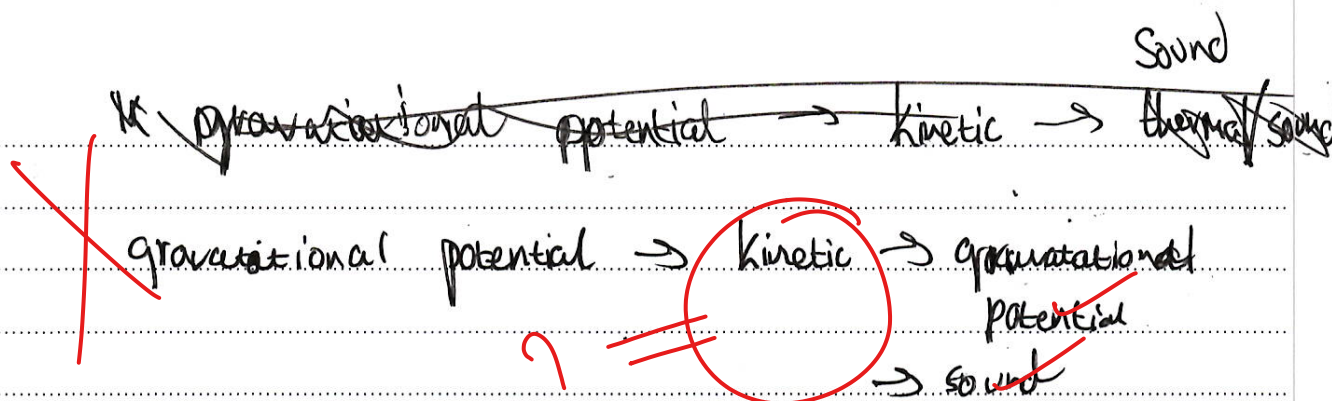 Sound
gravatational potential → kinetic → thermal/sound
gravatational potential → kinetic → gravatational
potential
? = → sound